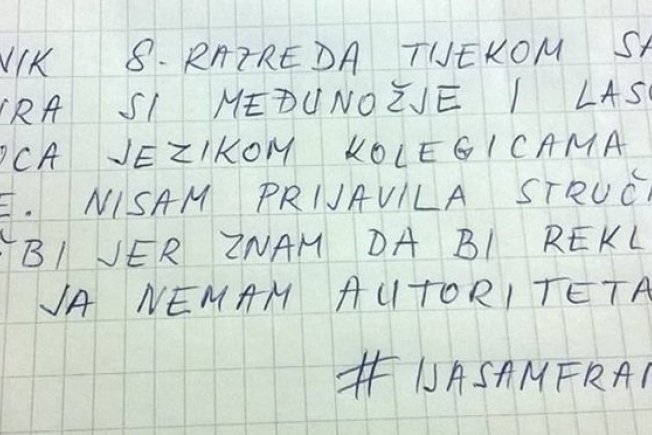 NIK 8. RAZREDA TIJEKOM SA
IRA SI MEĐUNOŽJE I LASC
OCA JEZIKOM KOLEGICAMA
E. NISAM PRIJAVILA STRUČ
ŽBI JER ZNAM DA BI REKL
JA NEMAM AUTORITETA
#IJASAMFRAN